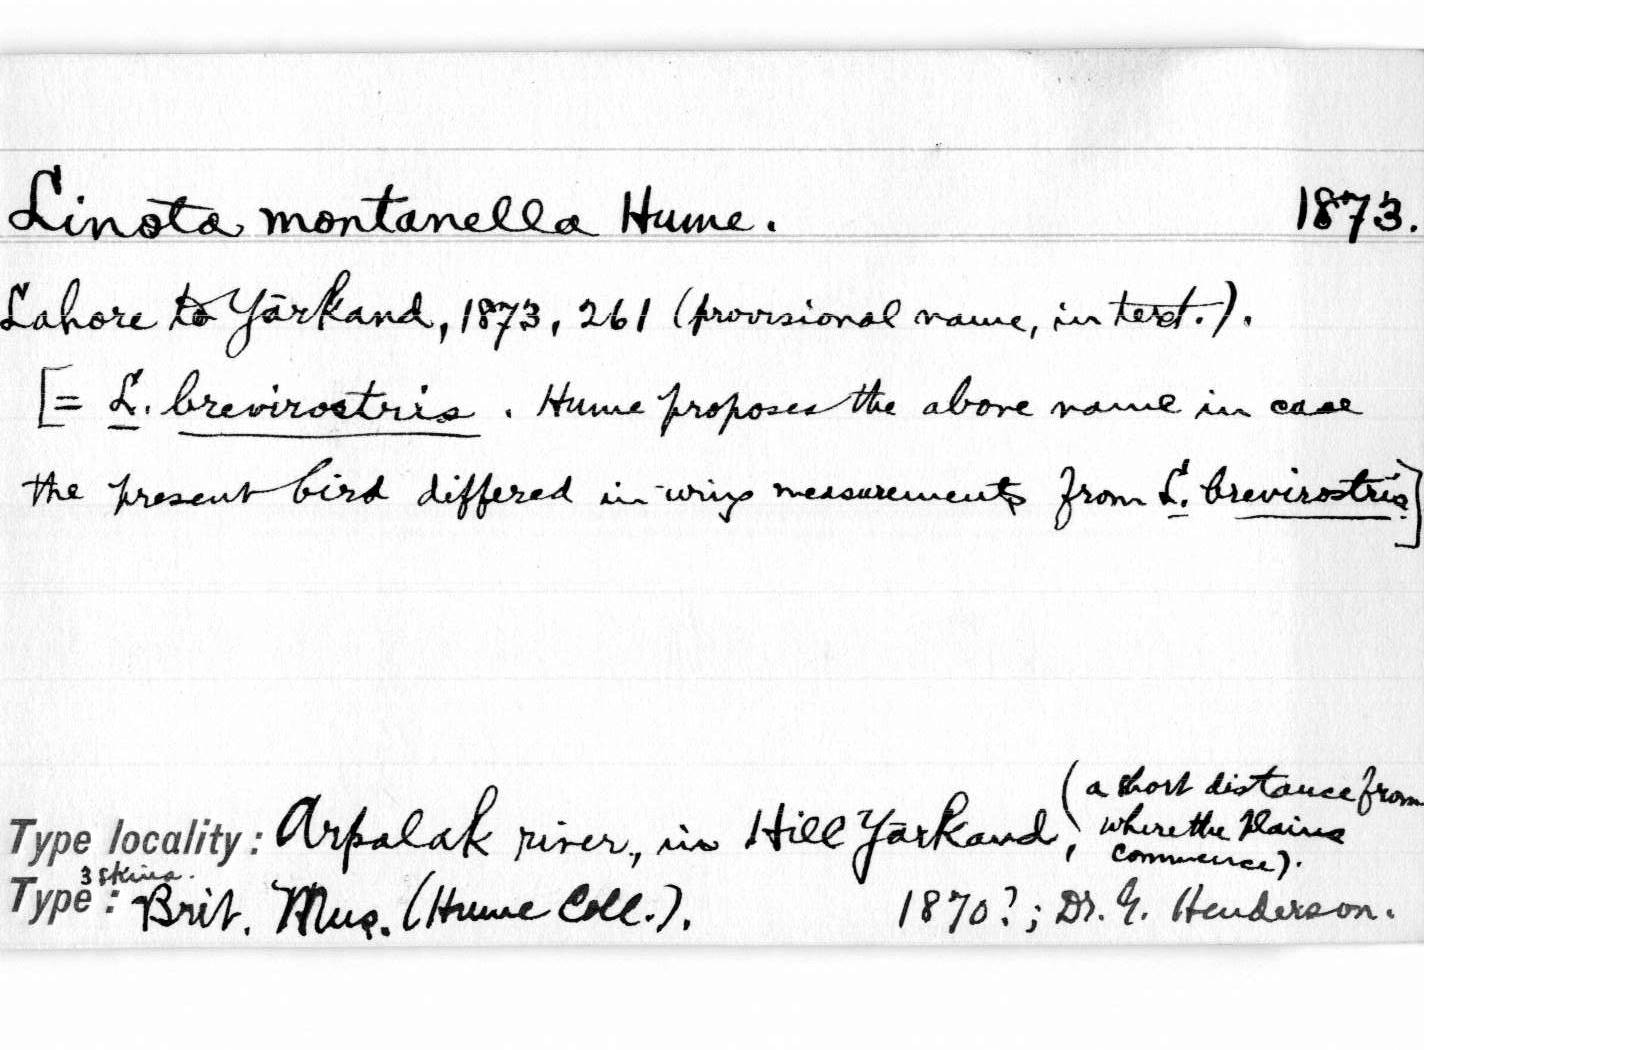 Linota montanella Hume. 1873.
Lahore to Yārkand, 1873, 261 (provisional name, in text.).
[= L. brevirostris. Hume proposes the above name in case
the present bird differed in wing measurements from L. brevirostris.]
Type locality: Arpalak river, in Hill Yārkand, (a short distance from
where the Plains
commence).
3 skins.
Type: Brit. Mus. (Hume Coll.). 1870?; Dr. G. Henderson.